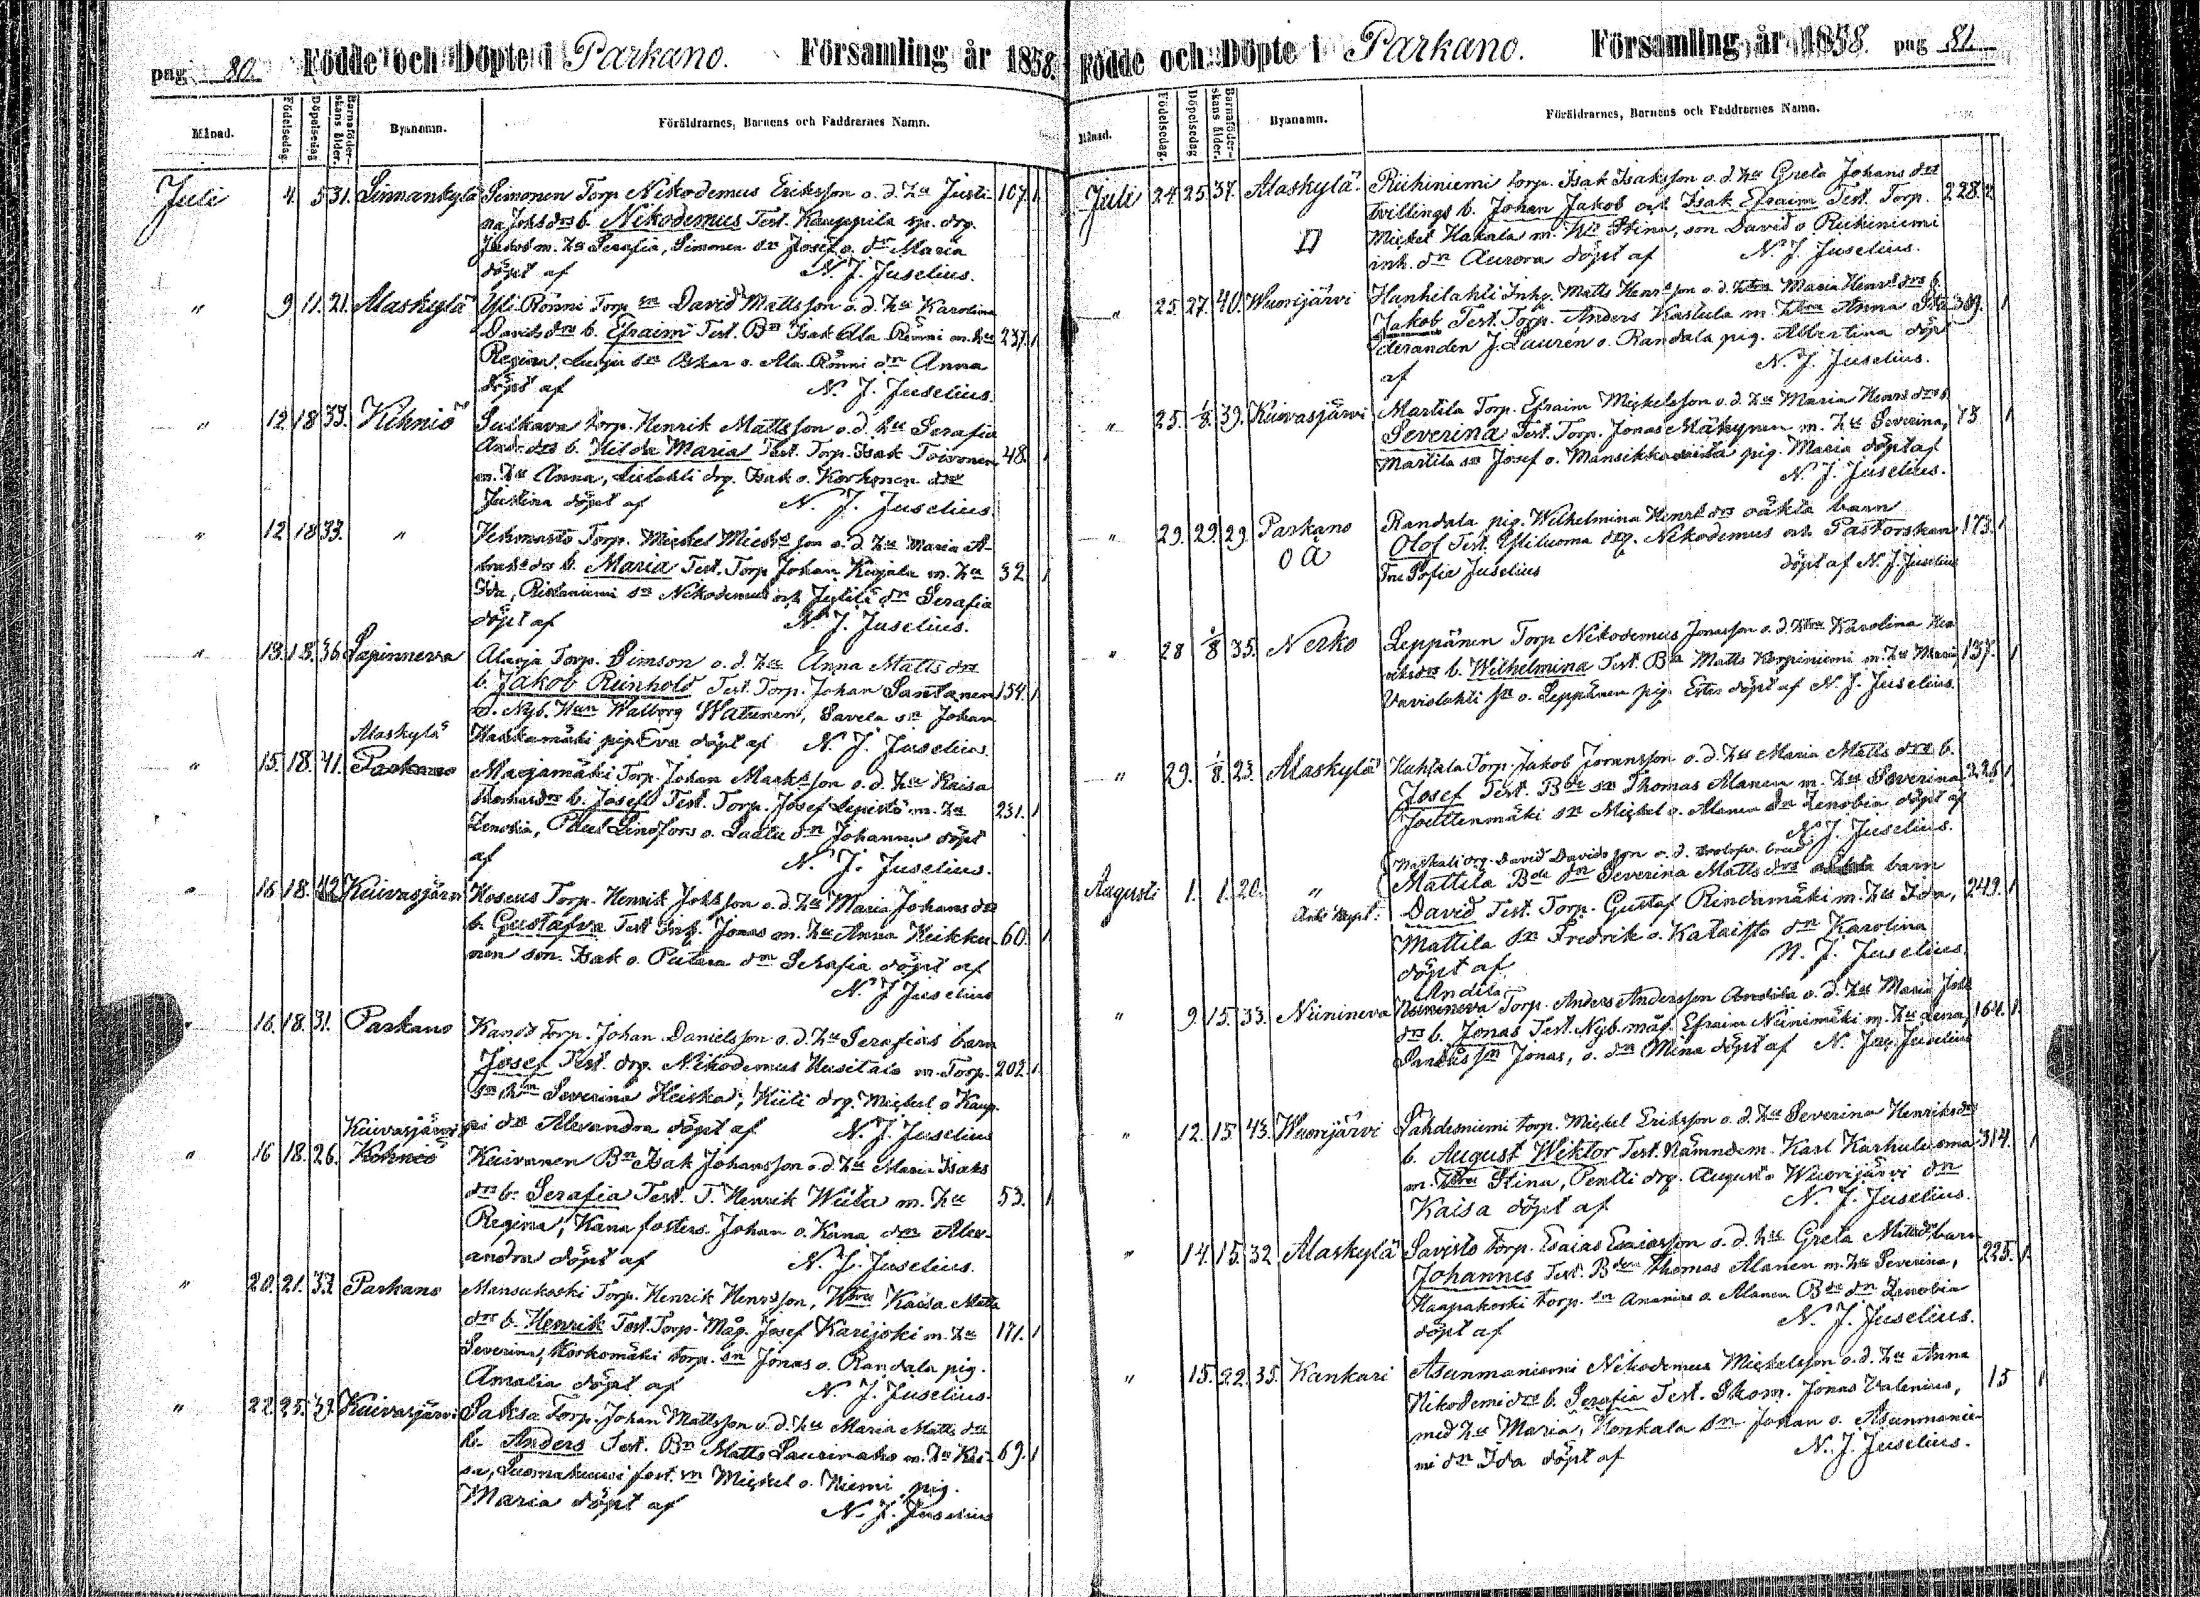 pag 80. Födde och Döpte i Parkano. Församling år 1858.
Månad. Födelsedag. Döpelsedag Barnaföderskans ålder. Byanamn. Föräldrarnes, Barnens och Faddrarnes Namn.
Juli 4. 5 31. Linnankylä Simonen Torp Nikodemus Eriksson o. d. hu Justi- 107. 1
na Johs drs b. Nikodemus Test. Kauppila drg.
Jakob m. hu Serafia, Simonen sn Josef o. dn Maria
döpt af N. J. Juselius.
" 9 11. 21. Alaskylä Yli Rönni Torp sn David Mattsson o. d. hu Karolina
Davids drs b. Efraim Test. Bn Isak Ala Rönni m. hu 237. 1
Regina, sn Oskar o. Ala Rönni dn Anna
döpt af N. J. Juselius.
" 12 18 33. Kihniö Sulkava torp. Henrik Mattsson o. d. hu Serafia
And. drs b. Hilda Maria Test. Torp. Isak Toivonen 48. 1
m. hu Anna, Lielahti drg. Isak o. Korhonen dn
Justina döpt af N. J. Juselius
" 12 18 33. " Torp. Mickel Micks son o. d. hu Maria A-
drs b. Maria Test. Torp Johan Kujala m. hu 32 1
Ida, Ristaniemi sn Nikodemus och dn Serafia
döpt af N. J. Juselius.
" 13. 18. 36 Lapinneva Alaoja Torp. Simson o. d. hu Anna Matts drs
b. Jakob Reinhold Test. Torp. Johan Santanen 154. 1
o. Nyb. Hun Walborg Watunen, Savela sn Johan
Alaskylä pig Eva döpt af N. J. Juselius.
" 15. 18. 41. Parkano Marjamäki Torp. Johan Marksson o. d. hu Kaisa
Thomas drs b. Josef Test. Torp. Josef Lepistö m. hu 231. 1
Zenobia, Paul Lindfors o. dn Johanna döpt
af N. J. Juselius.
" 16 18. 42 Kuivasjärvi Torp. Henrik Johsson o. d. hu Maria Johans drs
b. Gustafva Test Jonas m. hu Anna Keikku 60. 1
nen son. Isak o. dn Serafia döpt af
N. J Juselius
" 16. 18. 31. Parkano Torp. Johan Danielsson o. d. hu Serafias barn
Josef Test. drg. Nikodemus Husitalo m. Torp. 202. 1
Severina Heiska, Kiili drg. Mickel o Kaup-
Kuivasjärvi pi dn Alexandra döpt af N. J. Juselius
" 16 18. 26. Kihniö Kuivanen Bn Isak Johansson o. d. hu Maria Isaks
drs b. Serafia Test. T. Henrik Wiita m. hu 53. 1
Regina, Kana fosters. Johan o. Kana dn Alex-
andra döpt af N. J. Juselius.
" 20. 21. 37. Parkano Mansukoski Torp. Henrik Henrsson, Hustru Kaisa Matts
drs b. Henrik Test. Torp. Måg. Josef Karijoki m. hu 171. 1
Severina, Korkomäki torp. sn Jonas o. Randala pig.
Amalia döpt af N. J. Juselius.
" 22 25. Kuivasjärvi Saksa Torp. Johan Mattsson o. d. hu Maria Matts drs
b. Anders Test. Bn Matts m. hu Kai- 69. 1
sa, fost. sn Mickel o. Niemi pig.
Maria döpt af N. J. Juselius
Födde och Döpte i Parkano. Församling år 1858. pag 81.
Månad. Födelsedag. Döpelsedag Barnaföderskans ålder. Byanamn. Föräldrarnes, Barnens och Faddrarnes Namn.
Juli 24. 25 37. Alaskylä. Riihiniemi torp. Isak Isaksson o. d. hu Greta Johans drs
tvillings b. Johan Jakob och Isak Efraim Test. Torp. 228. 2
Mickel Hakala m. Stina, son David o Riihiniemi
inh. dn Aurora döpt af N. J. Juselius.
" 25. 27. 40. Wuorijärvi Hanhilahti Inh. Matts Henrsson o. d. Maria Henrs drs b.
Jakob Test. Torp. Anders Kastula m. Anna Stu- 309. 1
deranden J. Laurén o. Randala pig. Albertina döpt
af N. J. Juselius.
" 25. 1/8. 39. Kuivasjärvi Martila Torp. Efraim Mickelsson o. d. hu Maria Henrs drs b
Severina Test. Torp. Jonas Mäkynen m. hu Severina, 73 1
Martila sn Josef o. pig. Maria döpt af
N. J. Juselius.
" 29. 29. 29. Parkano Randala pig. Wilhelmina Henrs drs oäkta barn
o ä Olof Test. Yliluoma drg. Nikodemus och Pastorskan 173. 1
Fru Sofie Juselius döpt af N. J. Juselius
" 28 1/8 35. Nerko Leppänen Torp Nikodemus Jonasson o. d. Karolina Hen-
riks drs b. Wilhelmina Test. Bn Matts Korpiniemi m. hu Maria 137. 1
sn o. Leppänen pig. Ester döpt af N. J. Juselius.
" 29. 1/8. 23. Alaskylä Huhtala Torp. Jakob Joransson o. d. hu Maria Matts drs b.
Josef Test. Bde sn Thomas Alanen m. hu Severina 225 1
Jouttenmäki sn Mickel o. Alanen dn Zenobia döpt af
N. J. Juselius.
drg. David Davidsson o. d. trolofv. brud
Augusti 1. 1. 20. " Mattila Bde dn Severina Matts drs barn
David Test. Torp. Gustaf Rindamäki m. hu Ida, 249. 1
Mattila sn Fredrik o. Kataisto dn Karolina
döpt af N. J. Juselius.
Andila
" 9. 15. 33. Niinineva Niinineva Torp. Anders Andersson Andila o. d. hu Maria Joh
drs b. Jonas Test. Nyb. måg. Efraim Niinimäki m. hu Lena, 164. 1.
sn Jonas, o. dn Mina döpt af N. J. Juselius
" 12. 15 43. Wuorijärvi Lähdesniemi torp. Mickel Eriksson o. d. hu Severina Henriks dr
b. August Wiktor Test. Nämndem. Karl Karhuluoma 314. 1
m. Stina, Pentti drg. August o Wuorijärvi dn
Kaisa döpt af N. J. Juselius.
" 14. 15. 32 Alaskylä Savisto torp. Esaias Esaiasson o. d. hu Greta barn
Johannes Test. Bden Thomas Alanen m. hu Severina, 225. 1
Haapakoski torp. sn Ananias o. Alanen Bde dn Zenobia
döpt af N. J. Juselius.
" 15. 22. 35. Kankari Asunmaniemi Nikodemus Mickelsson o. d. hu Anna
Nikodemi drs b. Serafia Test. Skom. Jonas Valenius, 15 1
med hu Maria, Honkala sn Johan o. Asunmanie-
mi dn Ida döpt af N. J. Juselius.